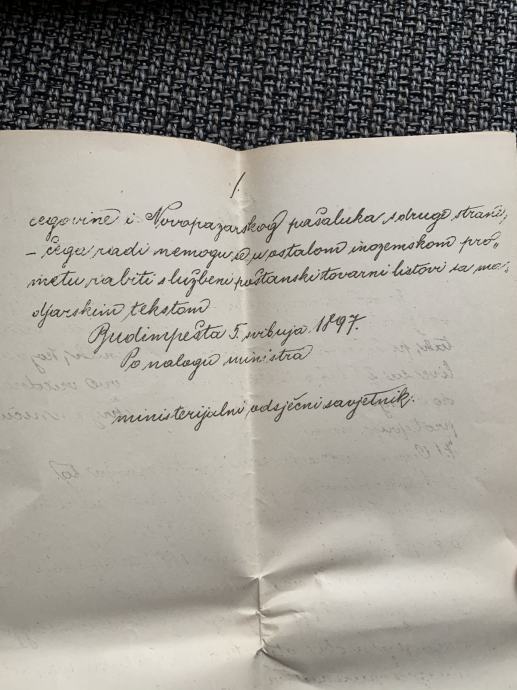 /.
cegovine i Novopazarskog pašaluka s druge strane,
– čega radi nemogu se u ostalom inozemskom pro„
metu rabiti službeni poštanski tovarni listovi sa ma„
djarskim tekstom
Budimpešta 5. svibnja 1897.
Po nalogu ministra
ministerijalni odsječni savjetnik.